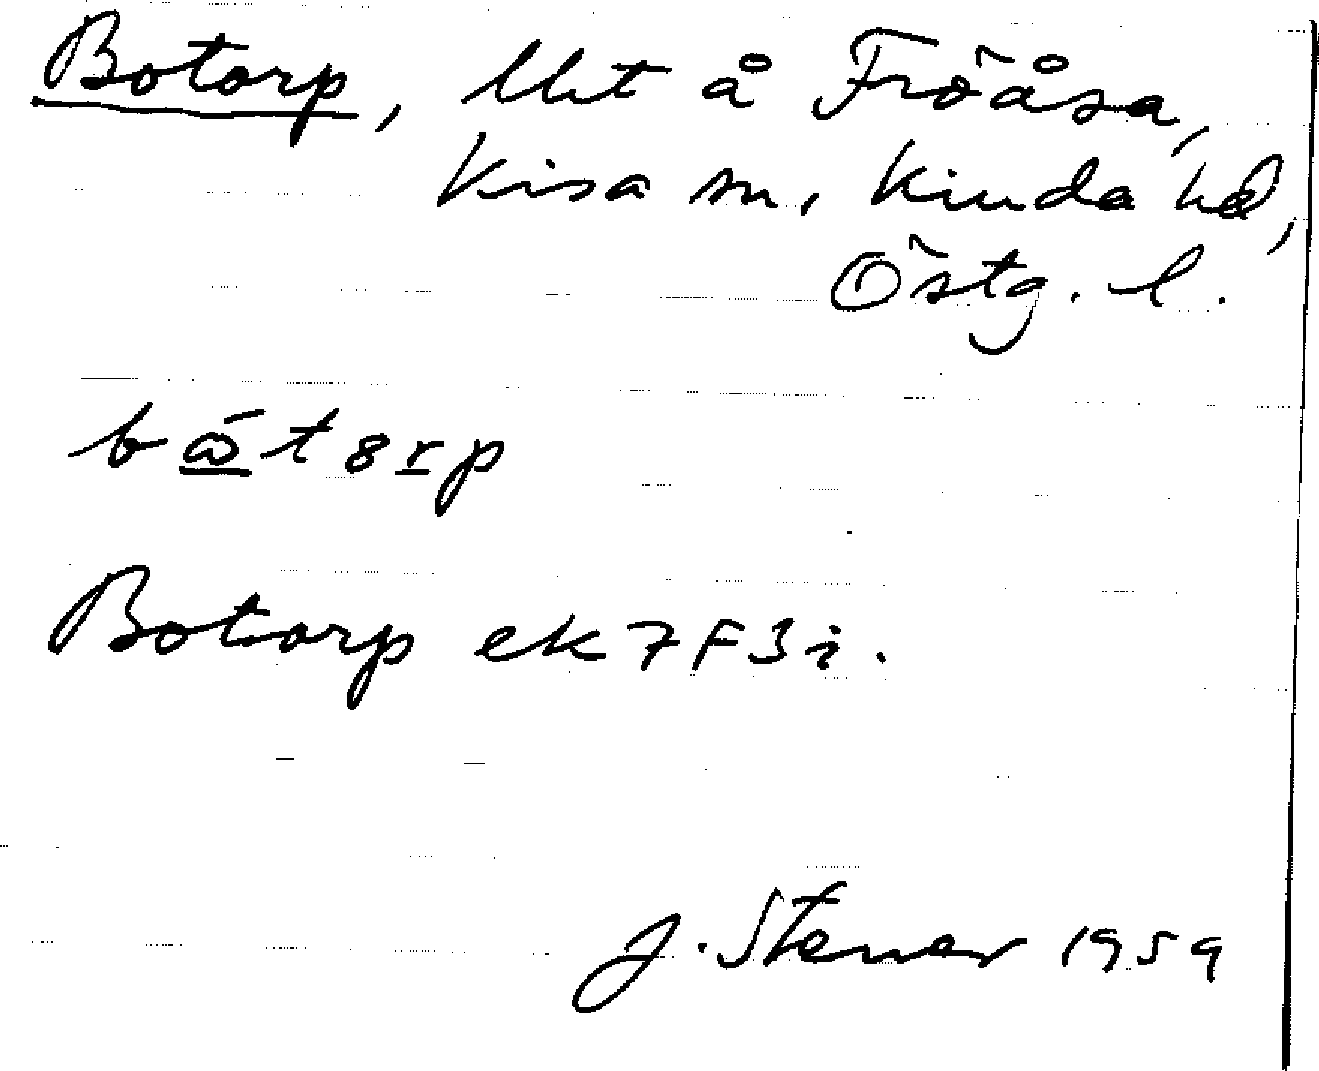 Botorp, lht å Fröåsa,
Kisa sn, Kinda hd,
Östg. l.
Botorp ek 7F3i.
J. Stener 1959